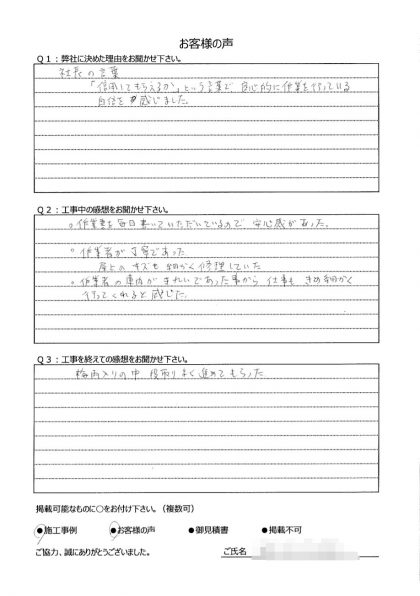 お客様の声
Q1：弊社に決めた理由をお聞かせ下さい。
社長の言葉
「信用してもらえるか」という言葉で 良心的に作業を行っている
自信を感じました。
Q2：工事中の感想をお聞かせ下さい。
○作業書を毎日書いていただいているので 安心感があった。
○作業者が丁寧であった
屋上のキズも細かく修理していた
○作業者の車内がきれいであった事から 仕事も きめ細かく
行ってくれると感じた。
Q3：工事を終えての感想をお聞かせ下さい。
梅雨入りの中 段取りよく進めてもらった
掲載可能なものに○をお付け下さい。（複数可）
●施工事例 ●お客様の声 ●御見積書 ●掲載不可
ご協力、誠にありがとうございました。 ご氏名